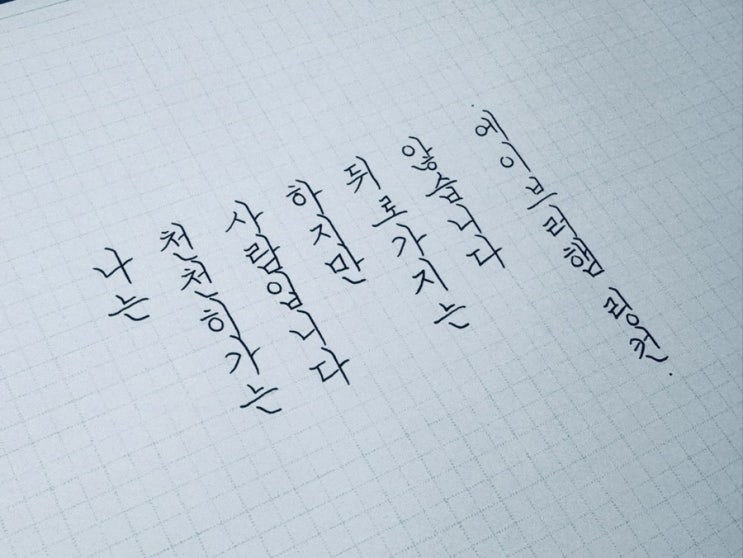 나는
천천히가는
사람입니다
하지만
뒤로가지는
않습니다
에이브러햄 링컨.